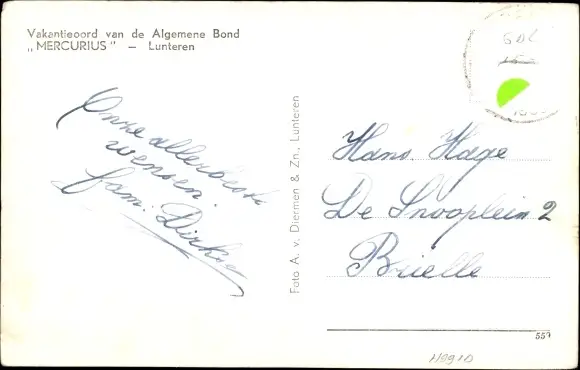 Vakantieoord van de Algemene Bond
„MERCURIUS” — Lunteren
Onze allerbeste
wensen.
fam. Dirkse
Foto A. v. Diermen & Zn., Lunteren
Hans Hage
De Snooplein 2
Brielle
559